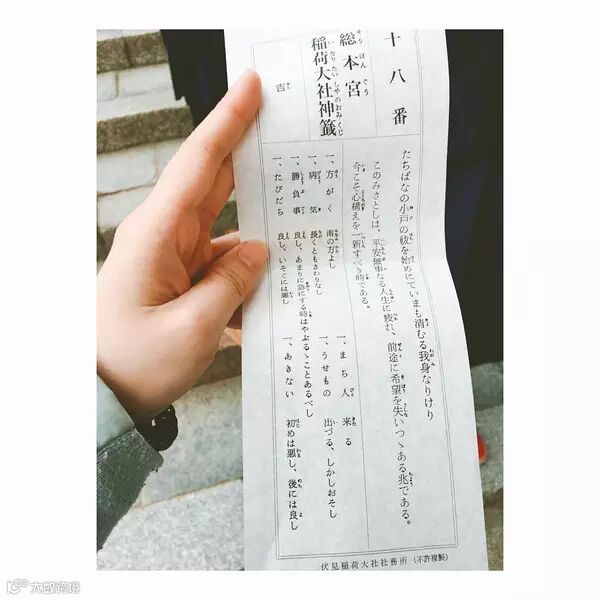 十八番
総本宮
稲荷大社神籤
吉
たちばなの小戸の祓を始めにていまも清むる我身なりけり
このみさとしは、平安無事なる人生に疲れ、前途に希望を失いつゝある兆である。
今こそ心構えを一新すべき時である。
一、方がく 南の方よし
一、病気 長くともさわりなし
一、勝負事 良し、あまりに急にする時はやぶるゝことあるべし
一、たびだち 良し、いそぐには悪し
一、まち人 来る
一、うせもの 出づる、しかしおそし
一、あきない 初めは悪し、後には良し
伏見稲荷大社社務所 (不許複製)
大数跨境